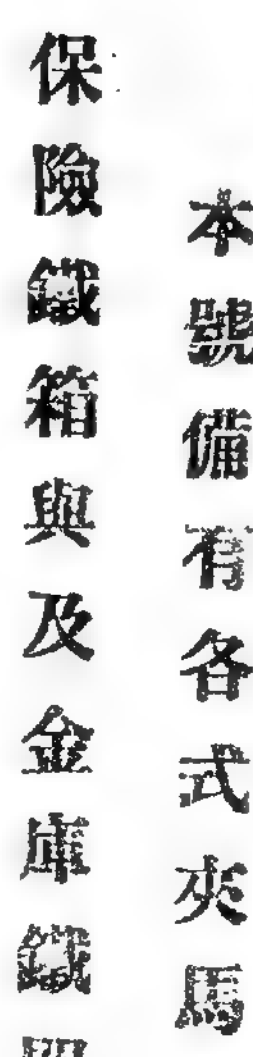 本號備有各式夾馬
保險鐵箱與及金庫鐵